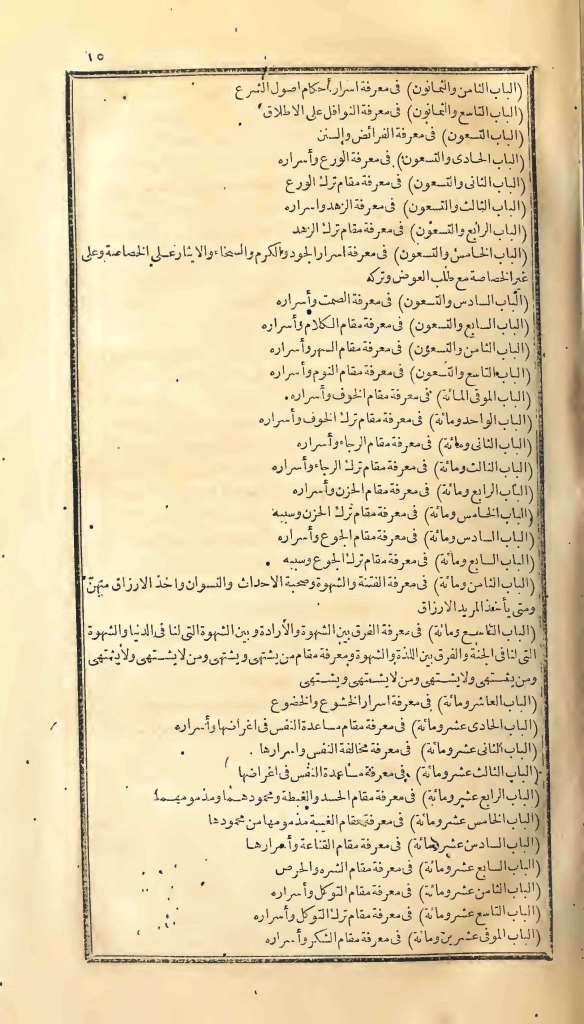 ١٥
(الباب الثامن والثمانون) فى معرفة اسرار أحكام اصول الشرع
(الباب التاسع والثمانون) فى معرفة النوافل على الاطلاق
(الباب التسعون) فى معرفة الفرائض والسنن
(الباب الحادى والتسعون) فى معرفة الورع وأسراره
(الباب الثانى والتسعون) فى معرفة مقام ترك الورع
(الباب الثالث والتسعون) فى معرفة الزهد واسراره
(الباب الرابع والتسعون) فى معرفة مقام ترك الزهد
(الباب الخامس والتسعون) فى معرفة اسرار الجود والكرم والسخاء والايثار على الخصاصة وعلى
غير الخصاصة مع طلب العوض وتركه
(الباب السادس والتسعون) فى معرفة الصمت وأسراره
(الباب السابع والتسعون) فى معرفة مقام الكلام وأسراره
(الباب الثامن والتسعون) فى معرفة مقام السهر وأسراره
(الباب التاسع والتسعون) فى معرفة مقام النوم وأسراره
(الباب الموفى المائة) فى معرفة مقام الخوف وأسراره
(الباب الواحد ومائة) فى معرفة مقام ترك الخوف وأسراره
(الباب الثانى ومائة) فى معرفة مقام الرجاء وأسراره
(الباب الثالث ومائة) فى معرفة مقام ترك الرجاء وأسراره
(الباب الرابع ومائة) فى معرفة مقام الحزن وأسراره
(الباب الخامس ومائة) فى معرفة مقام ترك الحزن وسببه
(الباب السادس ومائة) فى معرفة مقام الجوع وأسراره
(الباب السابع ومائة) فى معرفة مقام ترك الجوع وسببه
(الباب الثامن ومائة) فى معرفة الفتنة والشهوة وصحبة الاحداث والنسوان واخذ الارزاق منهنّ
ومتى يأخذ المريد الارزاق
(الباب التاسع ومائة) فى معرفة الفرق بين الشهوة والأرادة وبين الشهوة التى لنا فى الدنيا والشهوة
التى لنا فى الجنة والفرق بين اللذة والشهوة ومعرفة مقام من يشتهى ويشتهى ومن لا يشتهى ولا يشتهى
ومن يشتهى ولا يشتهى ومن لا يشتهى ويشتهى
(الباب العاشر ومائة) فى معرفة اسرار الخشوع والخضوع
(الباب الحادى عشر ومائة) فى معرفة مقام مساعدة النفس فى اغراضها وأسراره
(الباب الثانى عشر ومائة) فى معرفة مخالفة النفس واسرارها
(الباب الثالث عشر ومائة) فى معرفة مساعدة النفس فى اغراضها
(الباب الرابع عشر ومائة) فى معرفة مقام الحسد والغبطة ومحمودهما ومذمومهما
(الباب الخامس عشر ومائة) فى معرفة مقام الغيبة مذمومها من محمودها
(الباب السادس عشر ومائة) فى معرفة مقام القناعة وأسرارها
(الباب السابع عشر ومائة) فى معرفة مقام الشره والحرص
(الباب الثامن عشر ومائة) فى معرفة مقام التوكل وأسراره
(الباب التاسع عشر ومائة) فى معرفة مقام ترك التوكل وأسراره
(الباب الموفى عشرين ومائة) فى معرفة مقام الشكر وأسراره